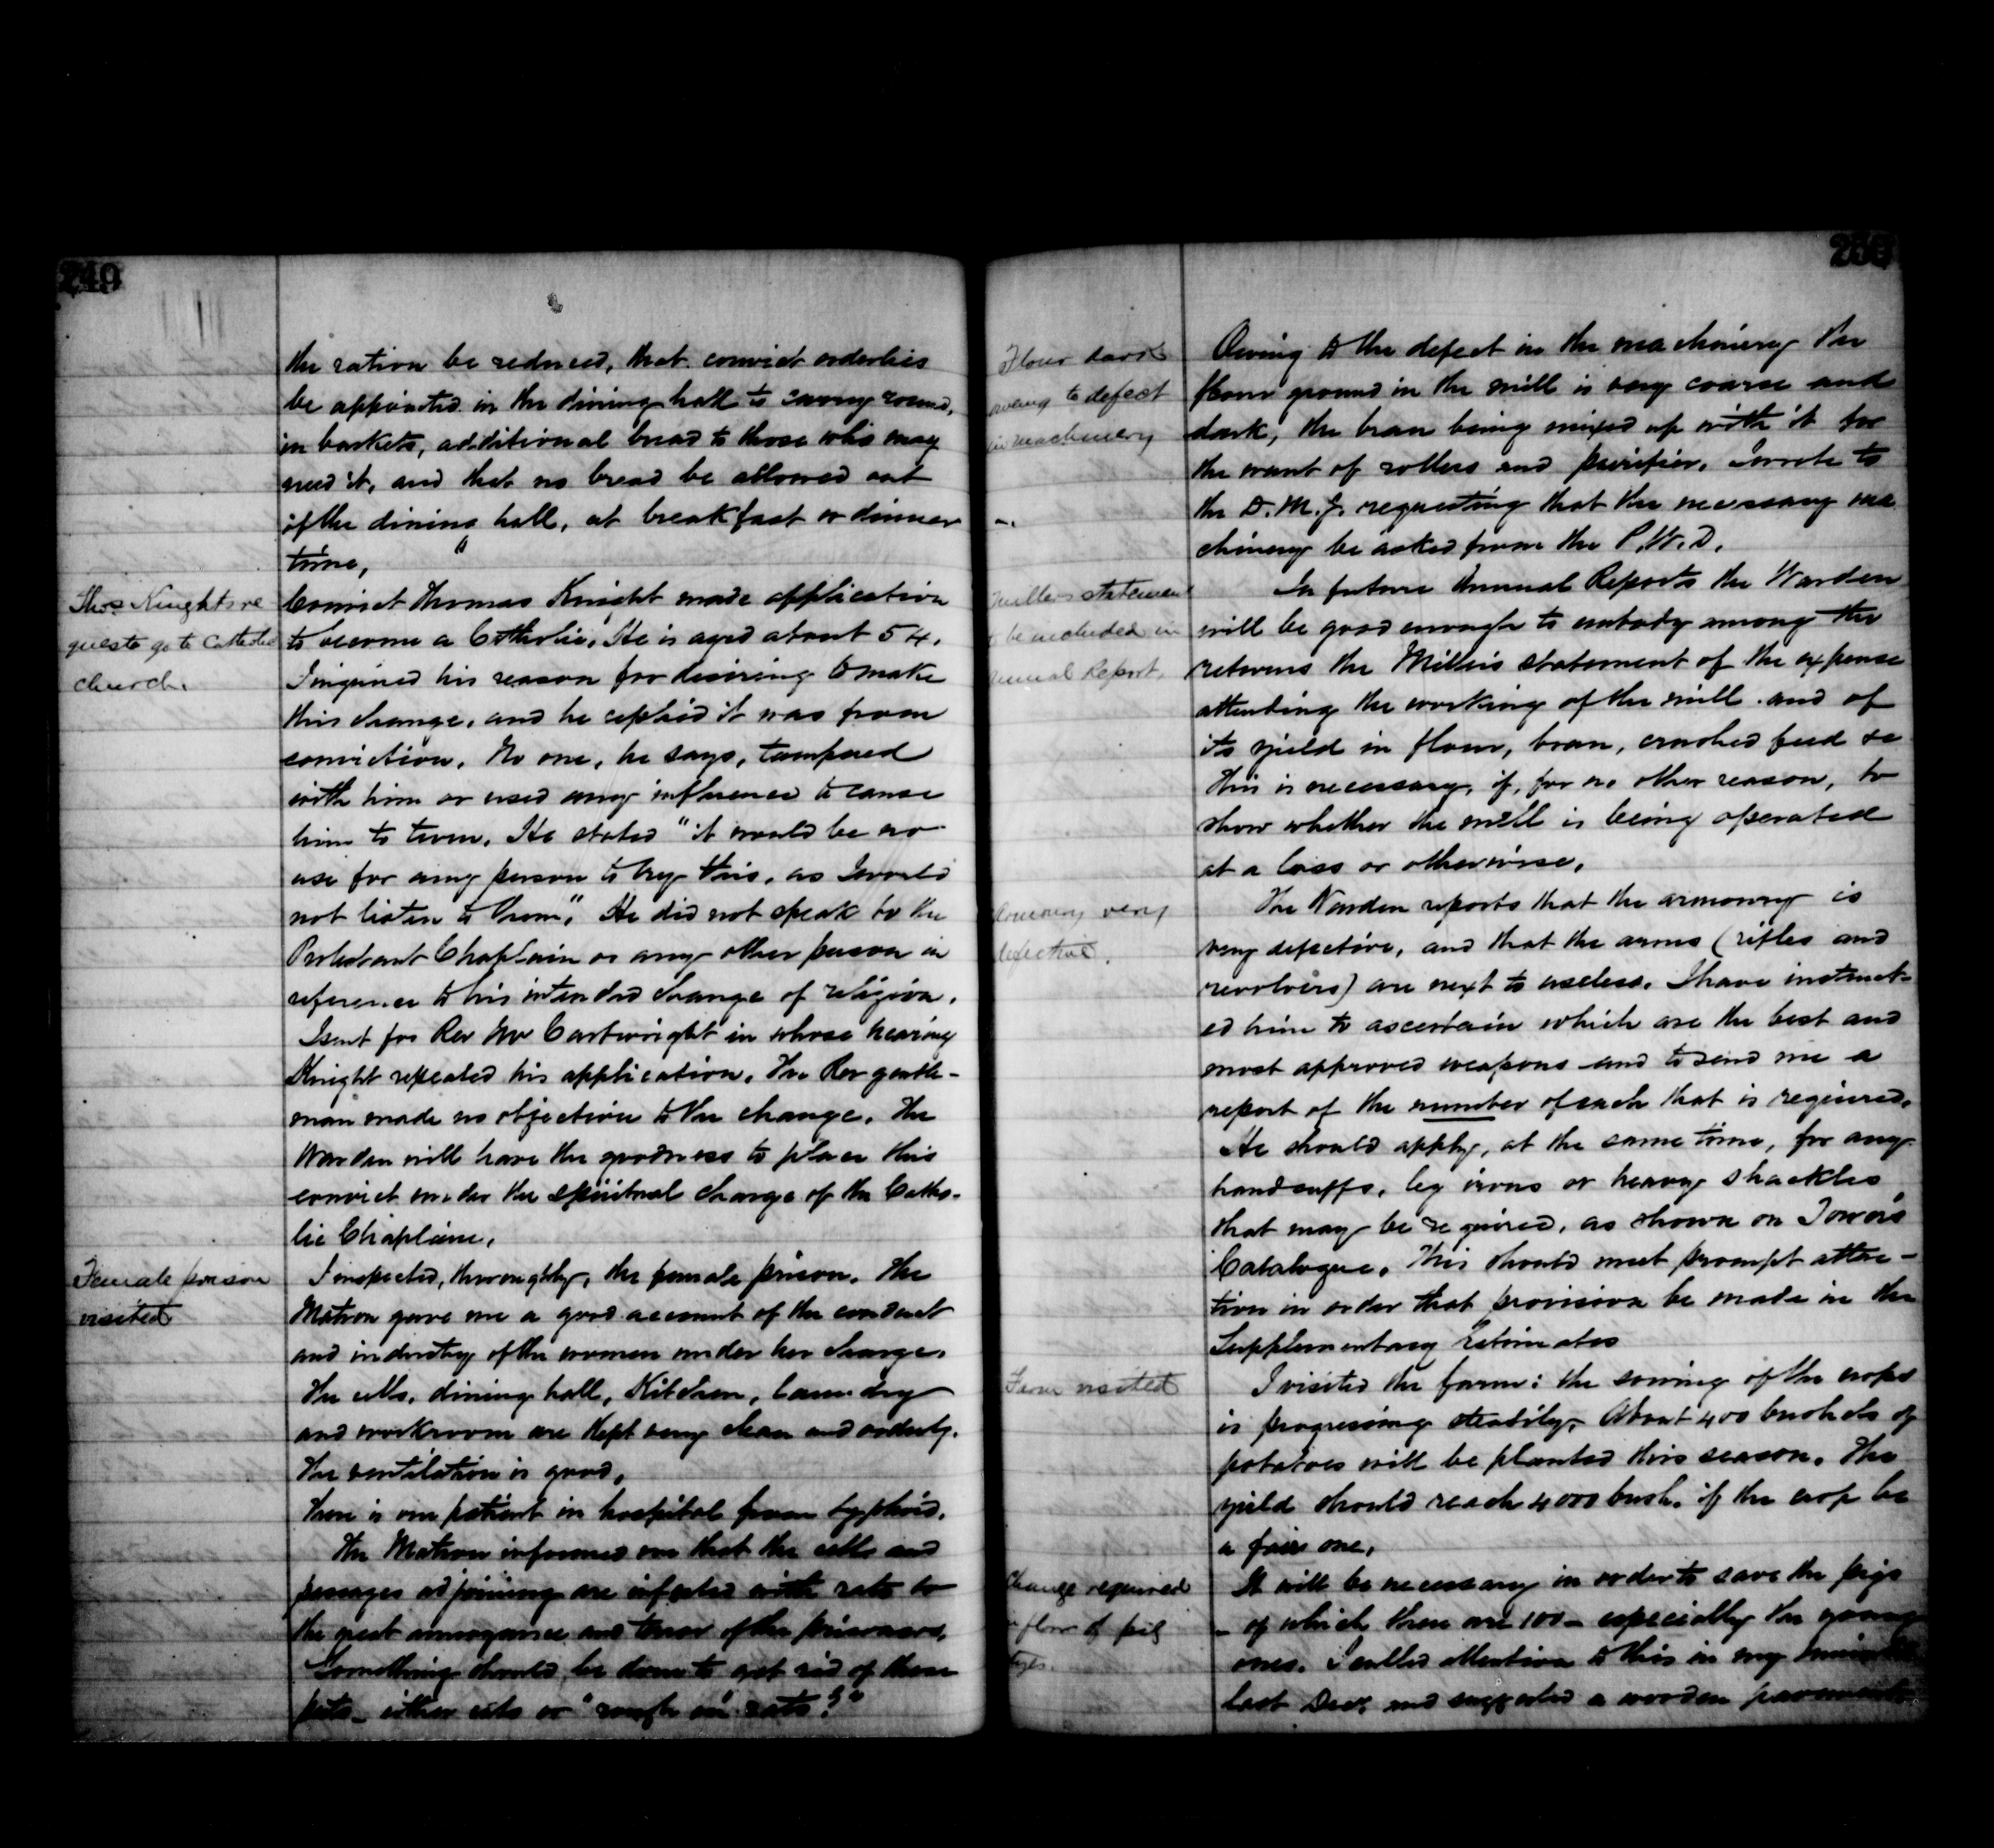 249
the ration be reduced, that convict orderlies
be appointed in the dining hall to carry round,
in baskets, additional bread to those who may
need it, and that no bread be allowed out
of the dining hall, at breakfast or dinner
time,
Thos Knights re
quest to go to Catholic
church.
Convict Thomas Knight made application
to become a Catholic. He is aged about 54.
I inquired his reason for desiring to make
this change, and he replied it was from
conviction. No one, he says, tampered
with him or used any influence to cause
him to turn. He stated "it would be no
use for any person to try this, as I would
not listen to them". He did not speak to the
Protestant Chaplain or any other person in
reference to his intended change of religion.
I sent for Rev Mr Cartwright in whose hearing
Knight repeated his application. The Rev gentle-
man made no objection to the change. The
Warden will have the goodness to place this
convict under the spiritual charge of the Catho-
lic Chaplain.
Female prison
visited
I inspected, thoroughly, the female prison. The
Matron gave me a good account of the conduct
and industry of the women under her charge.
The cells, dining hall, Kitchen, laundry
and workroom are kept very clean and orderly.
The ventilation is good.
There is one patient in hospital from typhoid.
The Matron informed me that the cells and
passages adjoining are infested with rats to
the great annoyance and terror of the prisoners.
Something should be done to get rid of these
pets - either cats or "rough on rats"?
250
Flour dark
owing to defect
in machinery
Owing to the defect in the machinery the
flour ground in the mill is very coarse and
dark, the bran being mixed up with it for
the want of rollers and purifier. I wrote to
the D.M.J. requesting that the necessary ma
chinery be asked from the P.W.D.
Millers statement
to be included in
Annual Report.
In future Annual Reports the Warden
will be good enough to embody among the
returns the Miller's statement of the expense
attending the working of the mill and of
its yield in flour, bran, crushed feed &c
This is necessary, if, for no other reason, to
show whether the mill is being operated
at a loss or otherwise.
Armoury very
defective.
The Warden reports that the armoury is
very defective, and that the arms (rifles and
revolvers) are next to useless. I have instruct-
ed him to ascertain which are the best and
most approved weapons and to send me a
report of the number of each that is required.
He should apply, at the same time, for any
handcuffs, leg irons or heavy shackles
that may be required, as shown on Tower's
Catalogue. This should meet prompt atten-
tion in order that provision be made in the
Supplementary Estimates
Farm visited
I visited the farm: the sowing of the crops
is progressing steadily. About 400 bushels of
potatoes will be planted this season. The
yield should reach 4000 bush. if the crop be
a fair one.
Change required
floor of pig
It will be necessary in order to save the pigs
- of which there are 100 - especially the young
ones. I called attention to this in my
last Decr and suggested a wooden pavement